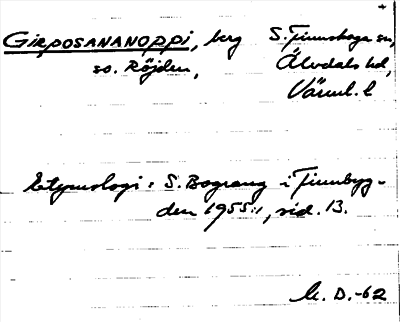 GIRPOSANANOPPI, berg S. Finnskoga sn,
so. Röjden, Älvdals hd,
Värml. l
Etymologi: S. Bograng i Finnbyg-
den 1955:1, sid. 13.
M. D.-62